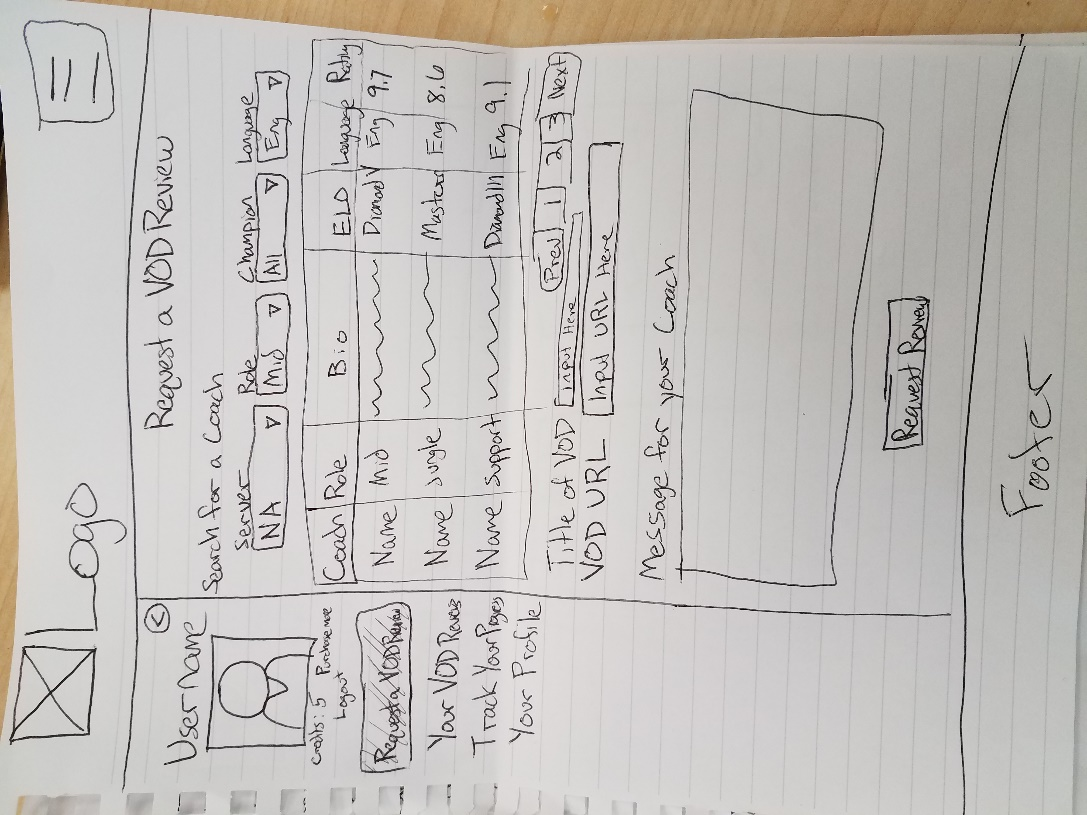 Logo
Username
Credits: 5 Purchase more
Logout
Request a VOD Review
Your VOD Reviews
Track Your Progress
Your Profile
Request a VOD Review
Search for a Coach
Server Role Champion Language
NA Mid All Eng
Coach Role Bio ELO Language Rating
Name Mid Diamond V Eng 9.7
Name Jungle Master Eng 8.6
Name Support Diamond III Eng 9.1
Prev 1 2 3 Next
Title of VOD Input Here
VOD URL Input URL Here
Message for your Coach
Request Review
Footer